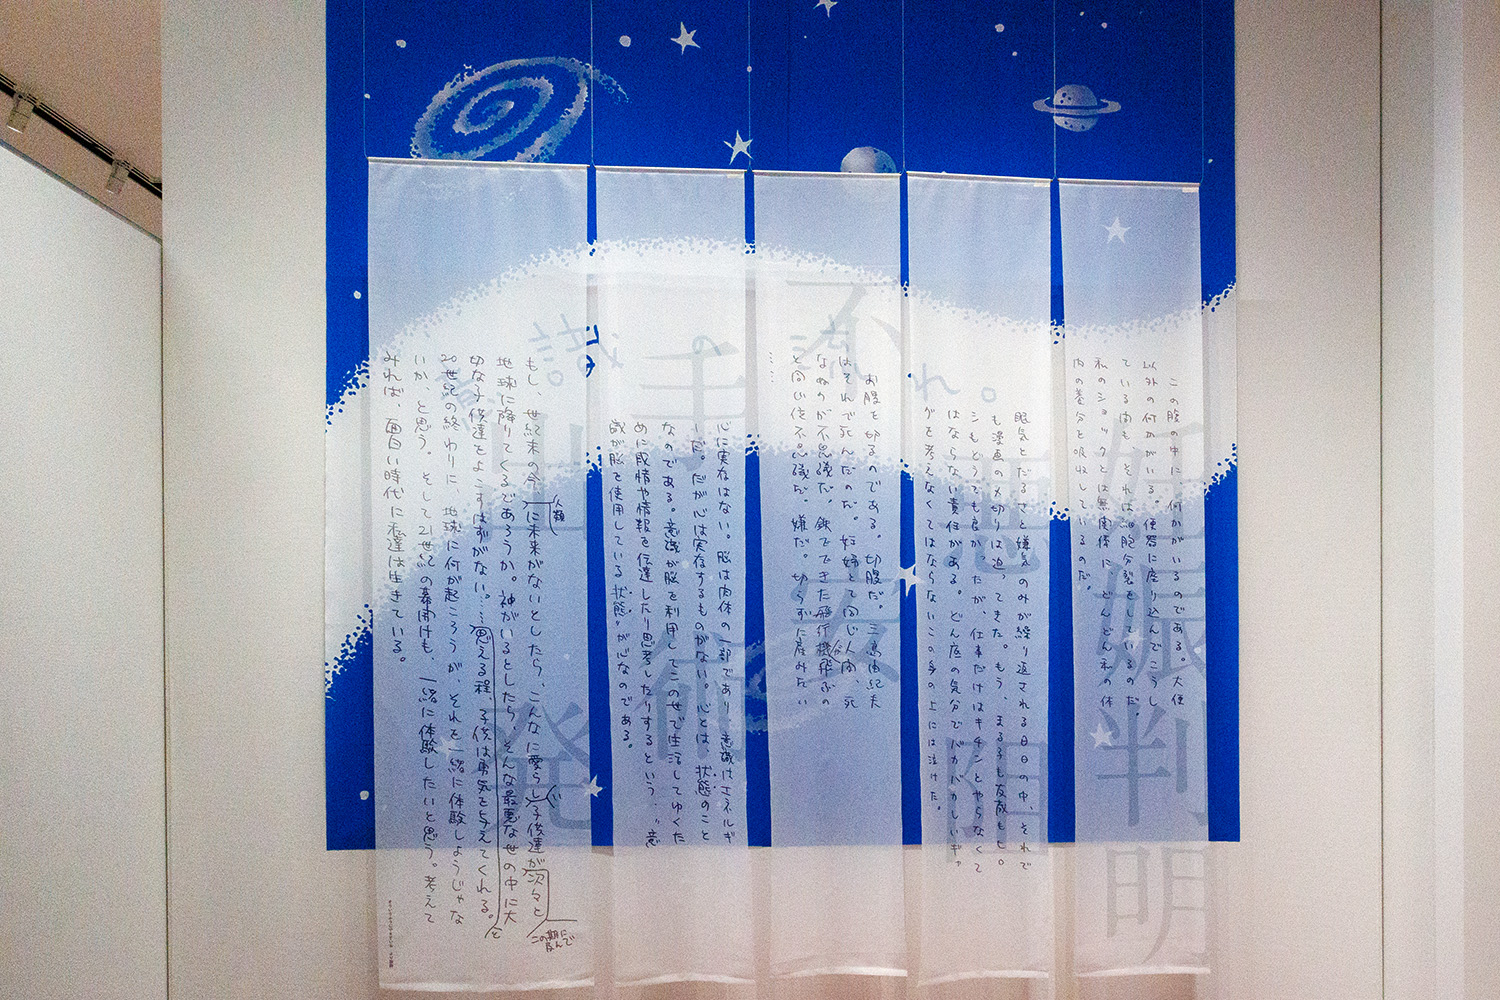 この腹の中に、何かがいるのである。大便
以外の何かがいる。便器に座り込んでこうし
ている間も、それは細胞分裂をしているのだ。
私のショックとは無関係に、どんどん私の体
内の養分を吸収しているのだ。
眠気とだるさと嫌気のみが繰り返される日日の中、それで
も漫画の〆切りは迫ってきた。もう、まる子も友蔵もヒ。
シもどうでも良かったが、仕事だけはキチンとやらなくて
はならない責任がある。どん底の気分でバカバカしいギャ
グを考えなくてはならないこの身の上には泣けた。
お腹を切るのである。切腹だ。三島由紀夫
はそれで死んだのだ。妊婦とて同じ人間、死
なぬのが不思議だ。鉄でできた飛行機が飛ぶの
と同じ位不思議だ。嫌だ。切らずに産みたい
……
心に実在はない。脳は肉体の一部であり、意識はエネルギ
ーだ。だが心は実存するものがない。心とは、状態のこと
なのである。意識が脳を利用してこの世で生活してゆくた
めに感情や情報を伝達したり思考したりするという、〝意
識が脳を使用している状態〟が心なのである。
もし、世紀末の今、人類に未来がないとしたら、こんなに愛らしい子供達が次々と
この期に及んで
地球に降りてくるであろうか。神がいるとしたら、そんな最悪な世の中に大
切な子供達をよこすはずがない。……と思える程、子供は勇気を与えてくれる。
20世紀の終わりに、地球に何が起ころうが、それを一緒に体験しようじゃな
いか、と思う。そして21世紀の幕開けも、一緒に体験したいと思う。考えて
みれば、面白い時代に私達は生きている。
妊娠判明
悪阻
手術